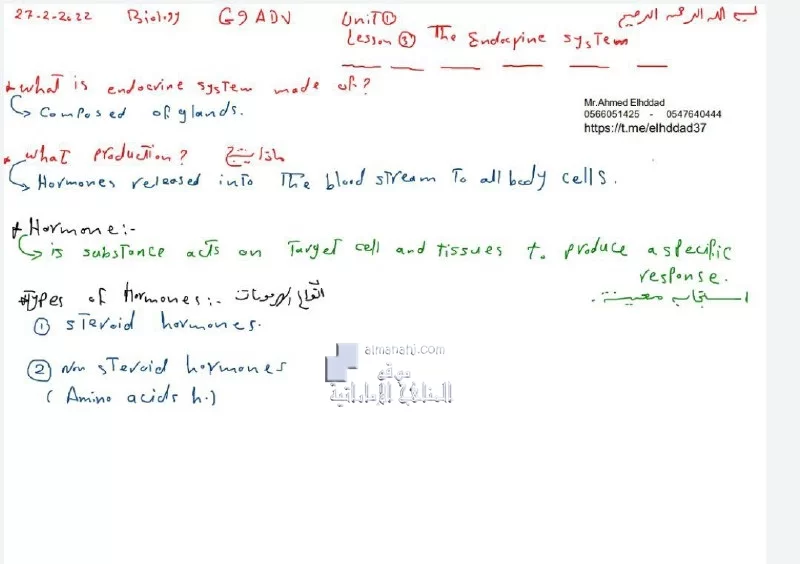 27-2-2022 Biology G9 ADV Unit ① بسم الله الرحمن الرحيم
Lesson ③ The Endocrine system
Mr.Ahmed Elhddad
0566051425 - 0547640444
https://t.me/elhddad37
* What is endocrine system made of?
↳ Composed of glands.
* What production? ماذا ينتج
↳ Hormones released into The blood stream To all body cells.
* Hormone:-
↳ is substance acts on Target cell and tissues to produce a specific
response.
استجابة معينة.
* Types of Hormones:- أنواع الهرمونات
① steroid hormones.
② Non steroid hormones
(Amino acids h.)
almanahj.com
موقع
المناهج الإماراتية